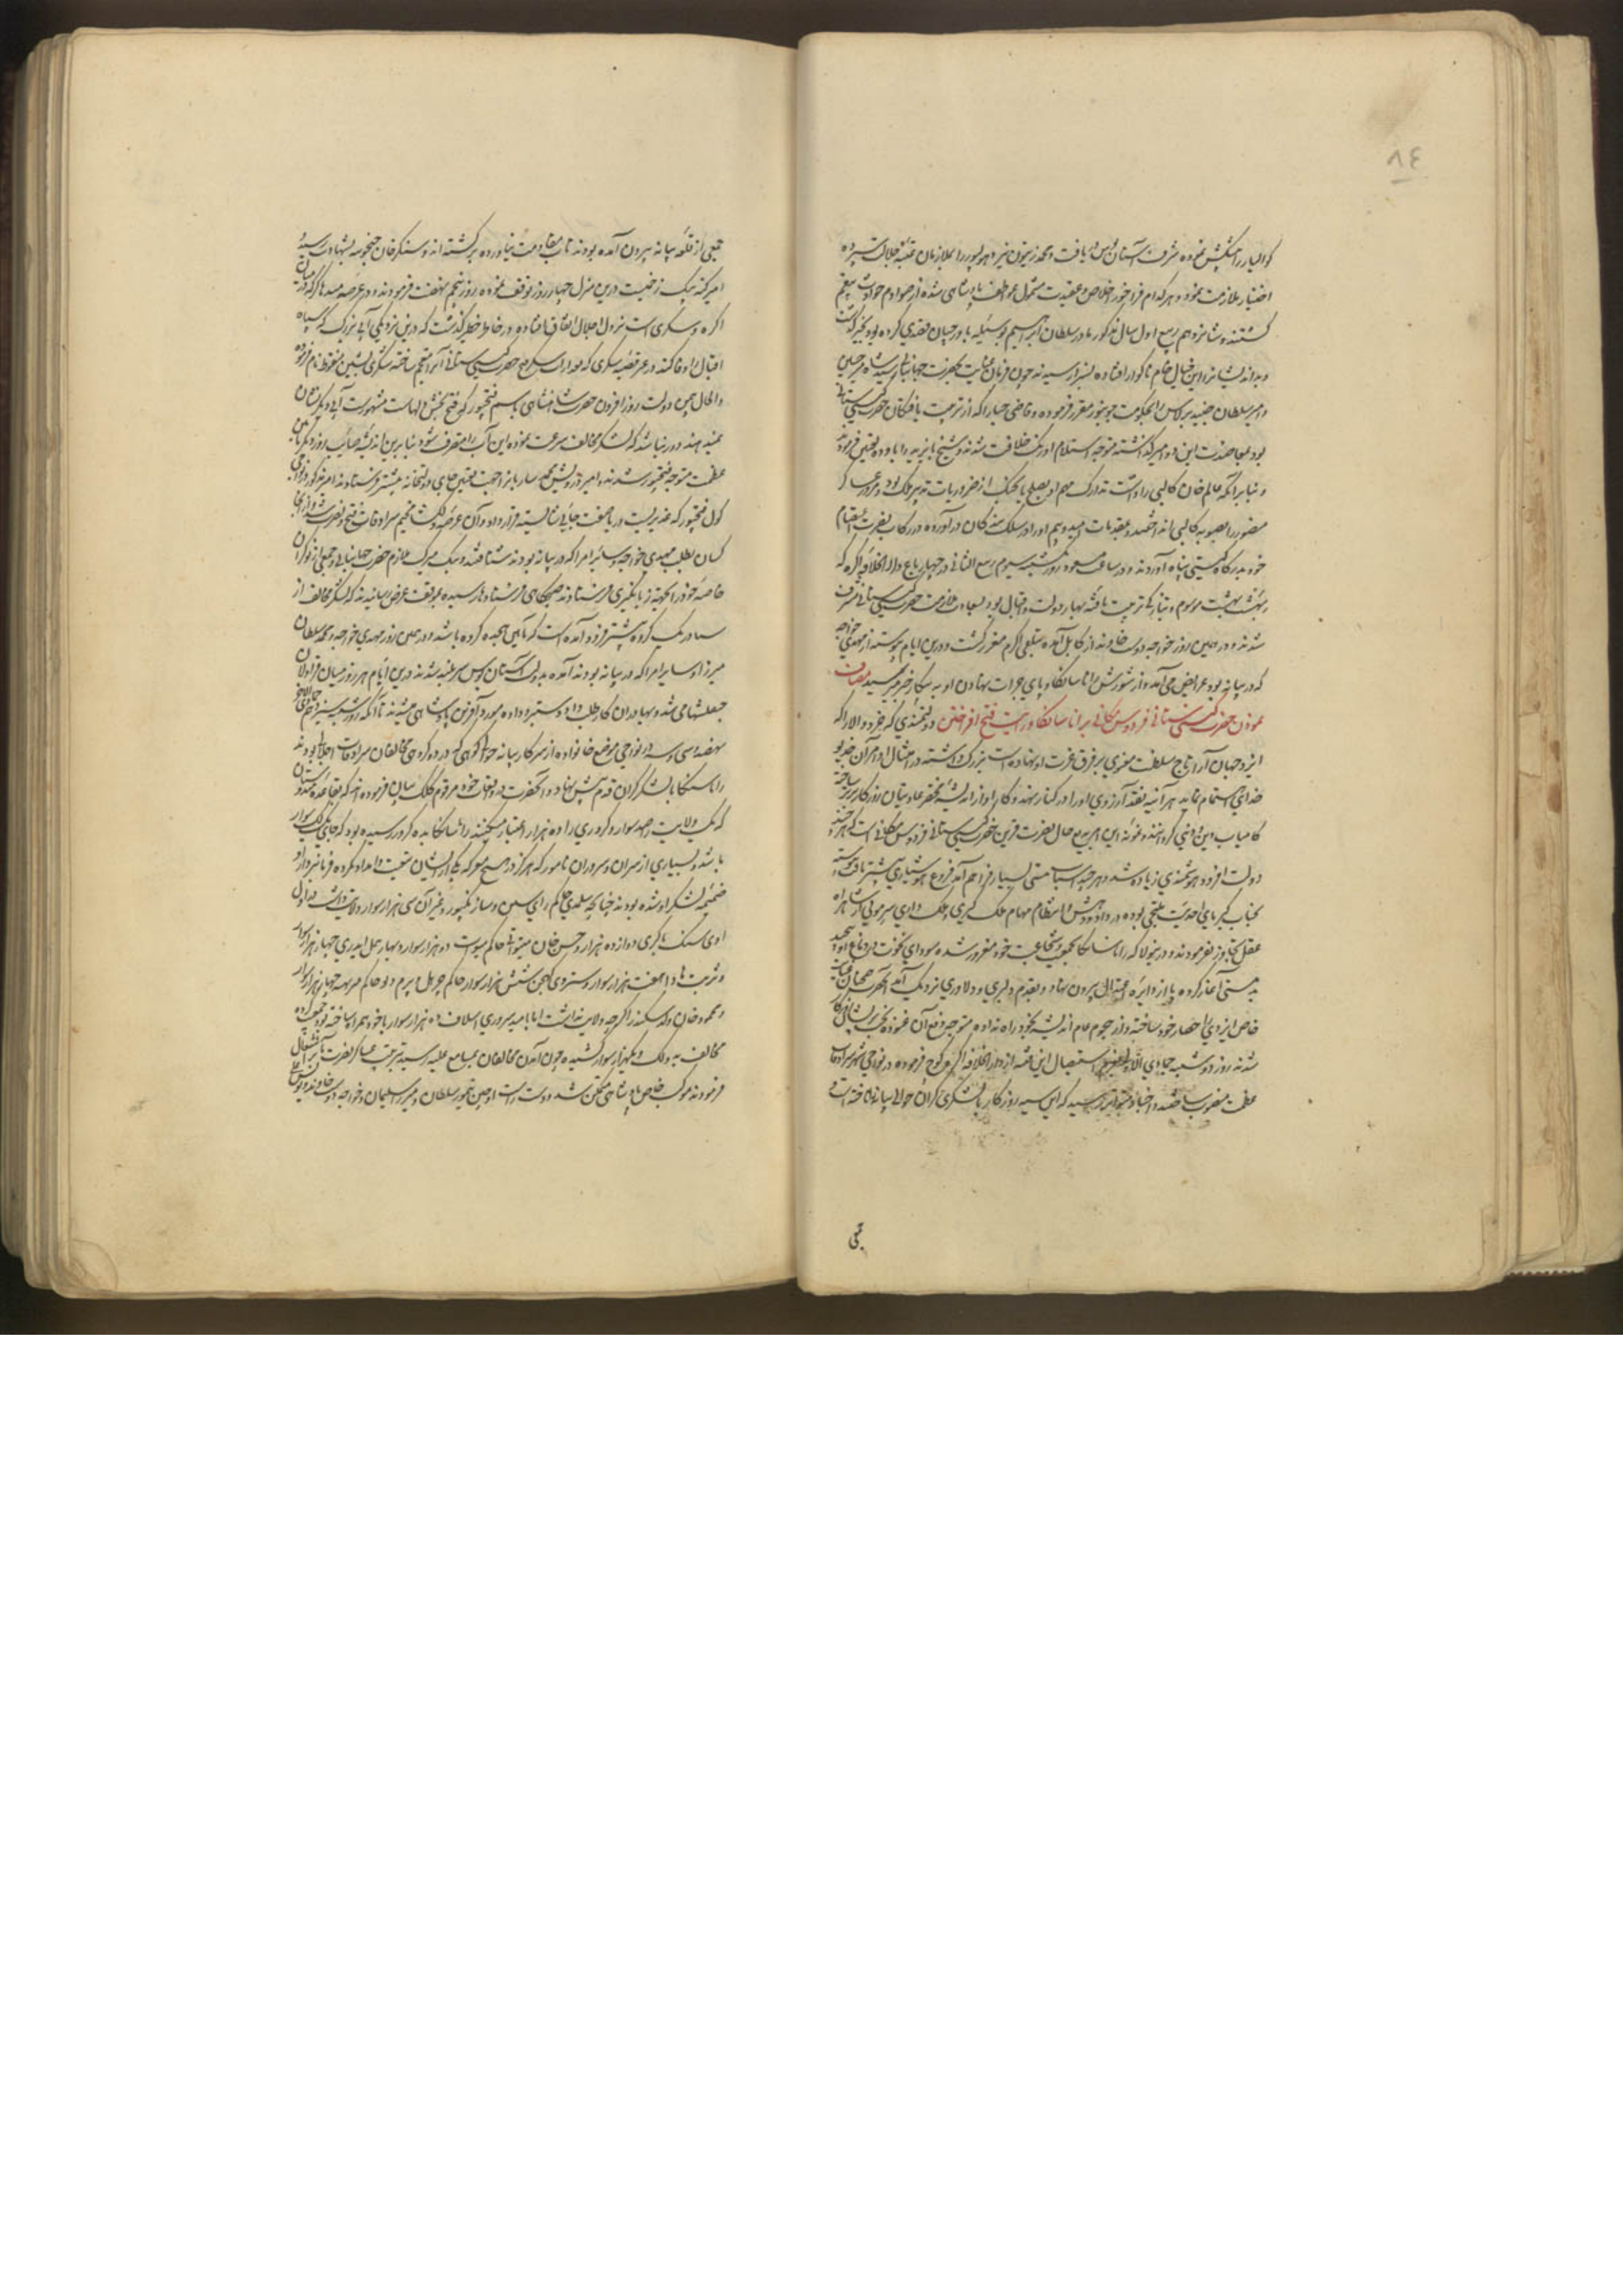 ٨٤
کوالیار را پیشکش نموده شرف آستان بوس دریافت و محمد زیتون نیز دهولپور را بملازمان عتبهٔ جلالت سپرده
اختیار ملازمت نمود و هر کدام فراخور اخلاص و عقیدت مشمول عواطف پادشاهی شده از صوادم حوادث
کشتند و شانزدهم ربیع اول سال مذکور مادر سلطان ابراهیم بوسیله باورچیان قصدی کرده بود بخیر گذشت
و بداندیشان را این خیال خام ناکوار افتاده بسزا رسیدند چون فرمان عنایت بحضرت جهانبانی رسید شاه میر حسین
و امیر سلطان جنید برلاس را بحکومت جونپور مقرر فرموده و قاضی جیا را که از تربیت یافتکان حضرت کیتی ستانی
بود بمعاضدت این دو امیر کذاشته متوجه استلام اورنک خلافت شدند و شیخ بایزید را باوده تعیین فرمودند
و بنابر آنکه عالم خان کالپی را داشت تدارک مهم او بصلح یا بجنک از ضروریات تدبیر ملک بود و مرور عساکر
منصور را بصوب کالپی انداختند و بمقدمات امید و بیم او را در سلک بندکان درآورده در رکاب نصرت اعتصام
خود بدرکاه کیتی پناه آوردند و در ساعت مسعود روز یکشنبه سیوم ربیع الثانی در چهار باغ دارالخلافه اکره که
بهشت بهشت موسوم و بتازگی تربیت یافته بهار دولت و اقبال بود بسعادت ملازمت حضرت کیتی ستانی مشرف
شدند و در همین روز خواجه دوست خاوند از کابل آمده بتلقی اکرم معزز کشت و درین ایام پیوسته از مهدی خواجه
که در بیانه بود عرایض می آمد و از شورش رانا سانکا و پای جرات نهادن او به پیکار خبر میرسید مصاف
نمودن حضرت کیتی ستانی فردوس مکانی برانا سانکا و رایت فتح افراختن دولتمندی که خرد والا را که
ایزد جهان آرا تاج سلطنت معنوی بر فرق عزت او نهاده است بزرک داشته در امتثال اوامر آن خدیو
خدای اهتمام نماید هر آئینه نقد آرزوی او را در کنار نهند و کار او از اندیشهٔ مختصر عادتیان روزکار برتر ساخته
کامیاب دین و دنیی کردانند و نمونه این امر بدیع حال نصرت قرین حضرت کیتی ستانی فردوس مکانی است که هر چند
دولت افزود هوشمندی زیاده شد و هر چند اسباب مستی بسیار فراهم آمد فروغ هوشیاری بیشتر تافت و پیوسته
بجناب کبریای احدیت ملتجی بوده در داد و دهش و انتظام مهام ملک کیری و ملک داری سر مویی از شاهراه
عقل تجاوز نفرمودند و درینولا که رانا سانکا بجمعیت و شجاعت خود مغرور شده سودای نخوت در دماغ او پیچید
بدمستی آغاز کرده پا از دایرهٔ اعتدال بیرون نهاد و بقدم دلیری و دلاوری نزدیک آمد آنحضرت همان عنایت
خاص ایزدی را حصار خود ساخته و از هجوم عام اندیشه بخود راه نداده متوجه دفع آن غنوده بخت پریشان روزکار
شدند روز دوشنبه جمادی الاول بعزم استیصال این فتنه از دارالخلافه اکره کوچ فرموده در نواحی شهر سرادقات
عظمت منصوب ساختند و اخبار متواتر رسید که این سیه روزکار با لشکری کران حوالی بیانه را تاخته است و
جمعی
جمعی از قلعه بیانه بیرون آمده بودند تاب مقاومت نیاورده برکشته اند و سنکر خان جنجوهه بشهادت رسید
امیر کته بیک زخمیست درین منزل چهار روز توقف نموده روز پنجم نهضت فرمودند و در عرصه منداکر که در میان
اکره و سیکری است نزول اجلال اتفاق افتاده در خاطر خطیر کذشت که درین نزدیکی آبی بزرک که سپاه
اقبال را وفا کند در عرصه سیکری که بعد از استعلاج حضرت کیتی ستانی آنرا معجم ساخته شکری بشین منقوط نام فرموده
والحال بیمن دولت روز افزون حضرت شاهنشاهی باسم فتحپور که فتح بخش دلهاست مشهورست آبی دیکر نشان
نمیدهند و دور نباشد که لشکر مخالف سرعت نموده این آب را متصرف شود بنابرین اندیشه صائب روز دیکر بآئین
عظمت متوجه فتحپور شدند و امیر درویش محمد ساربان را جهت تعیین جای دولتخانه پیشتر فرستادند امیر مذکور در نواحی
کول فتحپور که غدیریست دریا صفت جائی شایسته قرار داد و آن عرصهٔ دلکشا مخیم سرادقات فتح و نصرت شد و از آنجا
کسان بطلب مهدی خواجه و سایر امرا که در بیانه بودند شتافتند و بیک میرک ملازم حضرت جهانبانی و جمعی از نوکران
خاصه خود را بجهت زبانکیری فرستادند صبحکاهی فرستادها رسیده بموقف عرض رسانیدند که لشکر مخالف از
بساور یک کروه پیشتر فرود آمده است که تا این هجده کروه باشد و در همین روز مهدی خواجه و محمد سلطان
میرزا و سایر امرا که در بیانه بودند آمده بدولت آستان بوس سربلند شدند درین ایام هر روز میان قراولان
جپقلشها می شد و بهادران کار طلب داد دستبرد داده مورد آفرین پادشاهی میشدند تا آنکه روز شنبه سیزدهم جمادی الآخر
نهصد و سی و سه در نواحی موضع خانوا ده از سرکار بیانه حوالی کوهی که در دو کروهی مخالفان سرادقات اجلال بودند
رانا سنکا با لشکر کران قدم پیش نهاد و آنحضرت در واقعات خود مرقوم کلک بیان فرموده اند که بقاعده هندوستان
که یک ولایت را صد سوار و کروری را ده هزار اعتبار میکنند رانا سانکا بده کرور رسیده بود که جای یک لک سوار
باشد و بسیاری از سران و سروران نامور که هرکز در هیچ معرکه یکی از ایشان متعیت و امداد نکرده فرمانبردار و
ضمیمه لشکر او شده بودند چنانچه سلهدی حاکم رای سین و سارنکپور و غیر آن سی هزار سوار ولایت داشت و راول
اودی سنک باکری دوازده هزار و حسن خان میواتی حاکم میوات دوازده هزار سوار و بهارمل ایدری چهار هزار سوار
و نربت هادا هفت هزار سوار و ستروی کهچی شش هزار سوار حاکم چرتل و پرم دیو حاکم میرته چهار هزار سوار
و محمود خان ولد سکندر اکرچه ولایت نداشت اما بامید سروری اسلاف ده هزار سوار با خود همراه ساخته بود جمعیت کرده
مخالف به دو لک و یکهزار سوار کشیده چون آمدن مخالفان بمسامع علیه رسید ترتیب عساکر نصرت مآثر اشتغال
فرمودند موکب خاص پادشاهی متمکن شد و دست راست او چین تیمور سلطان و میرزا سلیمان و خواجه دوست خاوند و یونس علی